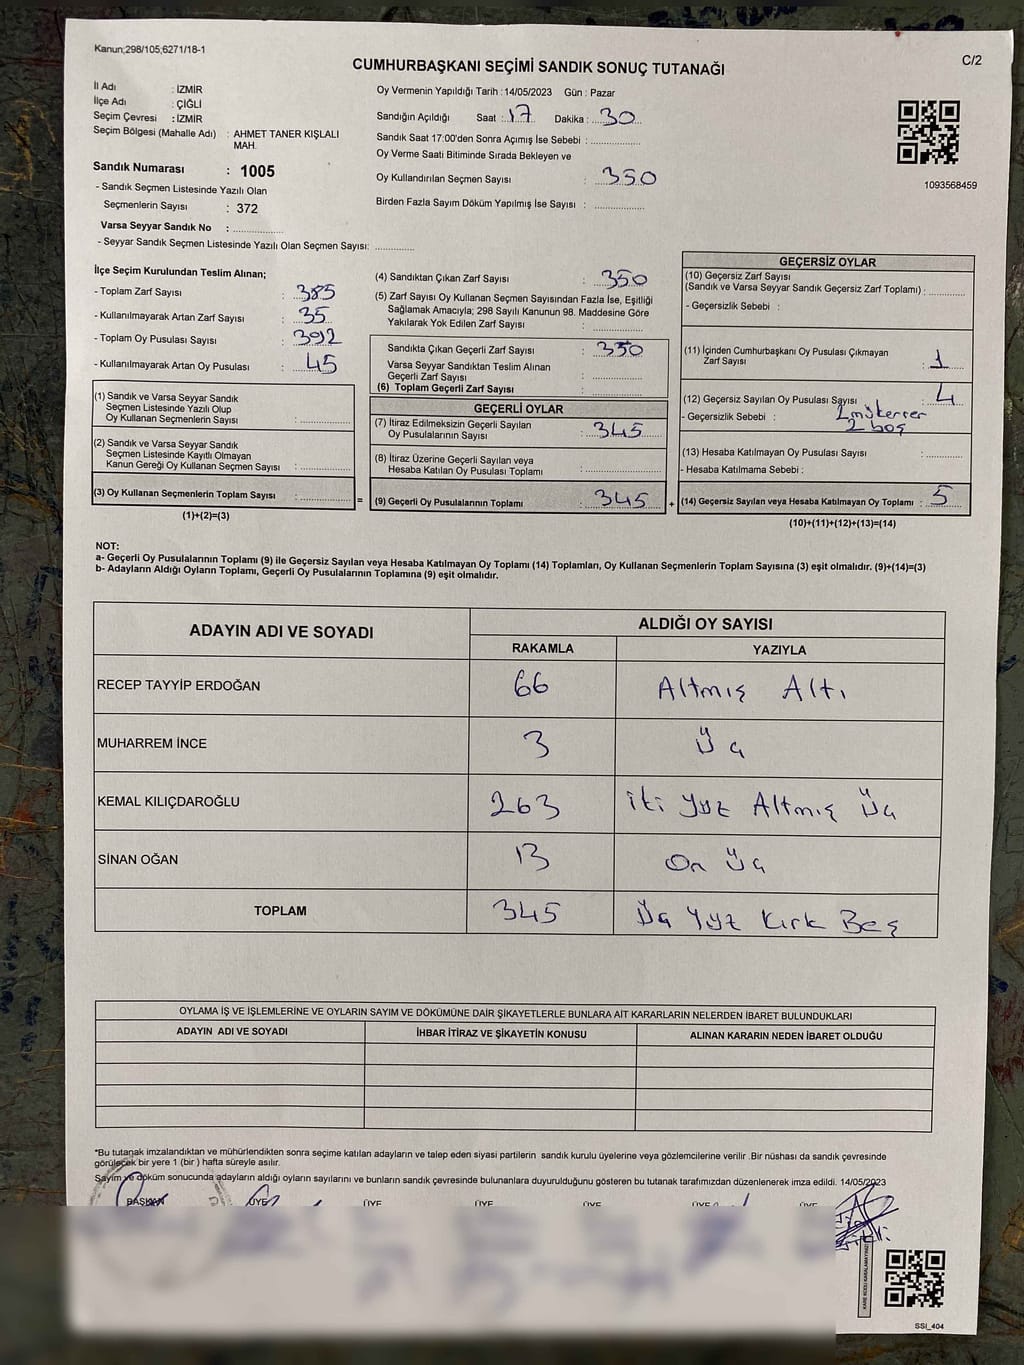 Kanun;298/105;6271/18-1
C/2
CUMHURBAŞKANI SEÇİMİ SANDIK SONUÇ TUTANAĞI
İl Adı : İZMİR
İlçe Adı : ÇİĞLİ
Seçim Çevresi : İZMİR
Seçim Bölgesi (Mahalle Adı) : AHMET TANER KIŞLALI
MAH.
Sandık Numarası : 1005
- Sandık Seçmen Listesinde Yazılı Olan
Seçmenlerin Sayısı : 372
Varsa Seyyar Sandık No :
- Seyyar Sandık Seçmen Listesinde Yazılı Olan Seçmen Sayısı:
Oy Vermenin Yapıldığı Tarih : 14/05/2023 Gün : Pazar
Sandığın Açıldığı Saat : 17 Dakika : 30
Sandık Saat 17:00'den Sonra Açımış İse Sebebi :
Oy Verme Saati Bitiminde Sırada Bekleyen ve
Oy Kullandırılan Seçmen Sayısı : 350
Birden Fazla Sayım Döküm Yapılmış İse Sayısı :
1093568459
İlçe Seçim Kurulundan Teslim Alınan;
- Toplam Zarf Sayısı : 385
- Kullanılmayarak Artan Zarf Sayısı : 35
- Toplam Oy Pusulası Sayısı : 392
- Kullanılmayarak Artan Oy Pusulası : 45
(1) Sandık ve Varsa Seyyar Sandık
Seçmen Listesinde Yazılı Olup
Oy Kullanan Seçmenlerin Sayısı :
(2) Sandık ve Varsa Seyyar Sandık
Seçmen Listesinde Kayıtlı Olmayan
Kanun Gereği Oy Kullanan Seçmen Sayısı :
(3) Oy Kullanan Seçmenlerin Toplam Sayısı : =
(1)+(2)=(3)
(4) Sandıktan Çıkan Zarf Sayısı : 350
(5) Zarf Sayısı Oy Kullanan Seçmen Sayısından Fazla İse, Eşitliği
Sağlamak Amacıyla; 298 Sayılı Kanunun 98. Maddesine Göre
Yakılarak Yok Edilen Zarf Sayısı :
Sandıkta Çıkan Geçerli Zarf Sayısı : 350
Varsa Seyyar Sandıktan Teslim Alınan
Geçerli Zarf Sayısı :
(6) Toplam Geçerli Zarf Sayısı :
GEÇERLİ OYLAR
(7) İtiraz Edilmeksizin Geçerli Sayılan
Oy Pusulalarının Sayısı : 345
(8) İtiraz Üzerine Geçerli Sayılan veya
Hesaba Katılan Oy Pusulası Toplamı :
(9) Geçerli Oy Pusulalarının Toplamı : 345 +
GEÇERSİZ OYLAR
(10) Geçersiz Zarf Sayısı
(Sandık ve Varsa Seyyar Sandık Geçersiz Zarf Toplamı) :
- Geçersizlik Sebebi :
(11) İçinden Cumhurbaşkanı Oy Pusulası Çıkmayan
Zarf Sayısı : 1
(12) Geçersiz Sayılan Oy Pusulası Sayısı : 4
- Geçersizlik Sebebi : 2 mükerrer
2 boş
(13) Hesaba Katılmayan Oy Pusulası Sayısı :
- Hesaba Katılmama Sebebi :
(14) Geçersiz Sayılan veya Hesaba Katılmayan Oy Toplamı : 5
(10)+(11)+(12)+(13)=(14)
NOT:
a- Geçerli Oy Pusulalarının Toplamı (9) ile Geçersiz Sayılan veya Hesaba Katılmayan Oy Toplamı (14) Toplamları, Oy Kullanan Seçmenlerin Toplam Sayısına (3) eşit olmalıdır. (9)+(14)=(3)
b- Adayların Aldığı Oyların Toplamı, Geçerli Oy Pusulalarının Toplamına (9) eşit olmalıdır.
ADAYIN ADI VE SOYADI
ALDIĞI OY SAYISI
RAKAMLA YAZIYLA
RECEP TAYYİP ERDOĞAN 66 Altmış Altı
MUHARREM İNCE 3 Üç
KEMAL KILIÇDAROĞLU 263 iki Yüz Altmış Üç
SİNAN OĞAN 13 On Üç
TOPLAM 345 Üç Yüz Kırk Beş
OYLAMA İŞ VE İŞLEMLERİNE VE OYLARIN SAYIM VE DÖKÜMÜNE DAİR ŞİKAYETLERLE BUNLARA AİT KARARLARIN NELERDEN İBARET BULUNDUKLARI
ADAYIN ADI VE SOYADI İHBAR İTİRAZ VE ŞİKAYETİN KONUSU ALINAN KARARIN NEDEN İBARET OLDUĞU
*Bu tutanak imzalandıktan ve mühürlendikten sonra seçime katılan adayların ve talep eden siyasi partilerin sandık kurulu üyelerine veya gözlemcilerine verilir .Bir nüshası da sandık çevresinde
görülecek bir yere 1 (bir ) hafta süreyle asılır.
Sayım ve döküm sonucunda adayların aldığı oyların sayılarını ve bunların sandık çevresinde bulunanlara duyurulduğunu gösteren bu tutanak tarafımızdan düzenlenerek imza edildi. 14/05/2023
BAŞKAN ÜYE ÜYE ÜYE ÜYE ÜYE ÜYE
KARE KODU KARALAMAYINIZ
SSI_404